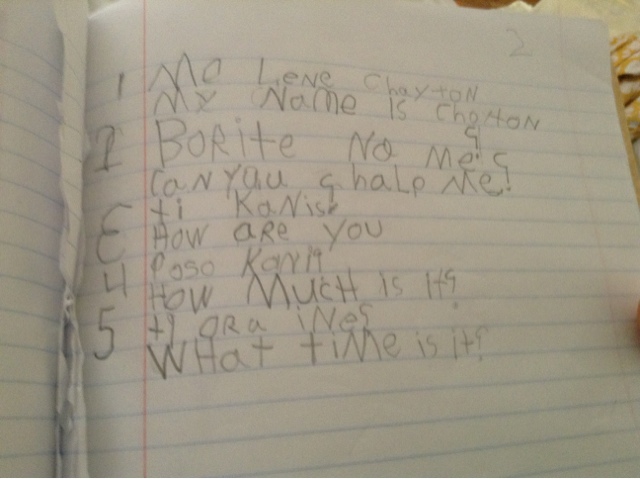 2
1 Mo Lene Chayton
My Name Is Chayton
2 Borite Na me?
Can yau halp Me?
3 ti Kanis
How are you
4 Poso Kani
How Much is it?
5 ti ora ine?
What time is it?